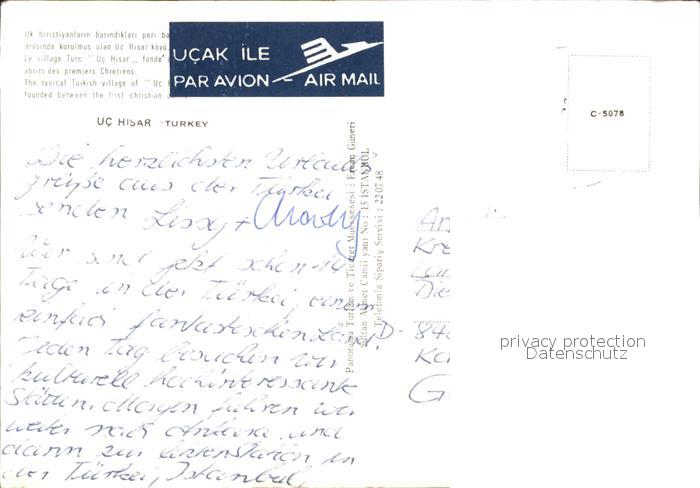 Ilk hıristiyanların barındıkları peri ba
arasında kurulmuş olan Uç Hisar köyü.
Le village Turc "Uç Hisar,, fondé
abrits des premiers Chretiens.
The typical Turkish village of "Uç H
founded between the frist christian
UÇAK İLE
PAR AVION - AIR MAIL
UÇ HISAR - TURKEY
C-5078
Die herzlichsten Urlaubs
grüße aus der Türkei
senden Lissy +
Wir sind jetzt schon 14
Tage in der Türkei, einem
einfach fantastischen Land.
Jeden Tag besuchen wir
kulturell hochinteressante
Stätten. Morgen fahren wir
weiter nach Ankara und
dann zur Endstation in
der Türkei, Istanbul.
Panorama Turizm ve Ticaret Müessesesi : Ergun Güneri
Sultan Ahmet Camii yanı No : 15 İSTANBUL
Telefonla Sipariş Servisi : 22 07 48
Kre
Die
D- 840
privacy protection
Datenschutz